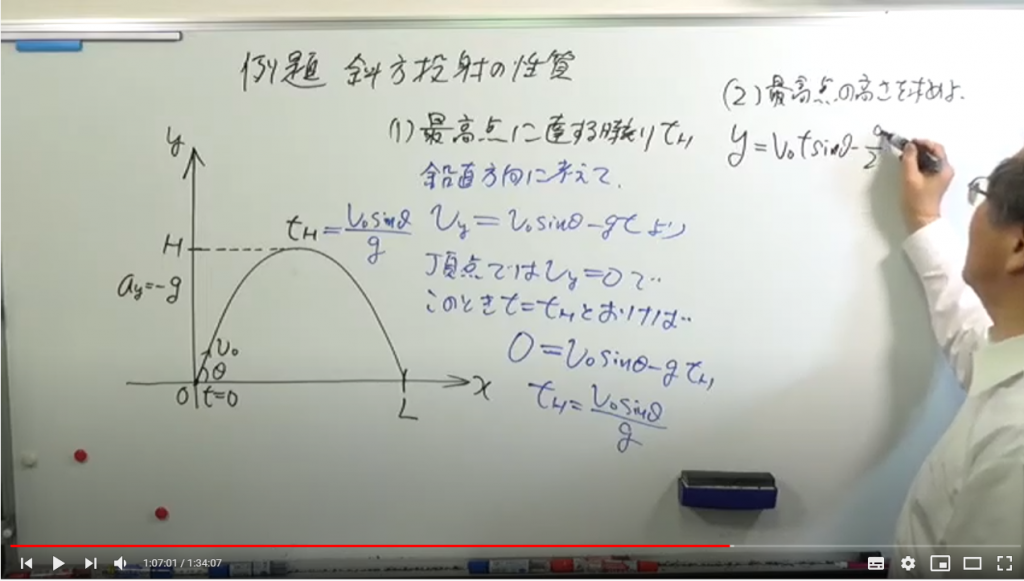 例題 斜方投射の性質
(1)最高点に達する時刻tH
鉛直方向に考えて、
Vy=V₀sinθ-gtより
頂点ではVy=0で‥
このときt=tHとおけば‥
0=V₀sinθ-gtH
tH=V₀sinθ/g
y
H
tH=V₀sinθ/g
ay=-g
V₀
θ
O
t=0
L
x
(2)最高点の高さを求めよ.
y=V₀tsinθ-g/2
1:07:01 / 1:34:07